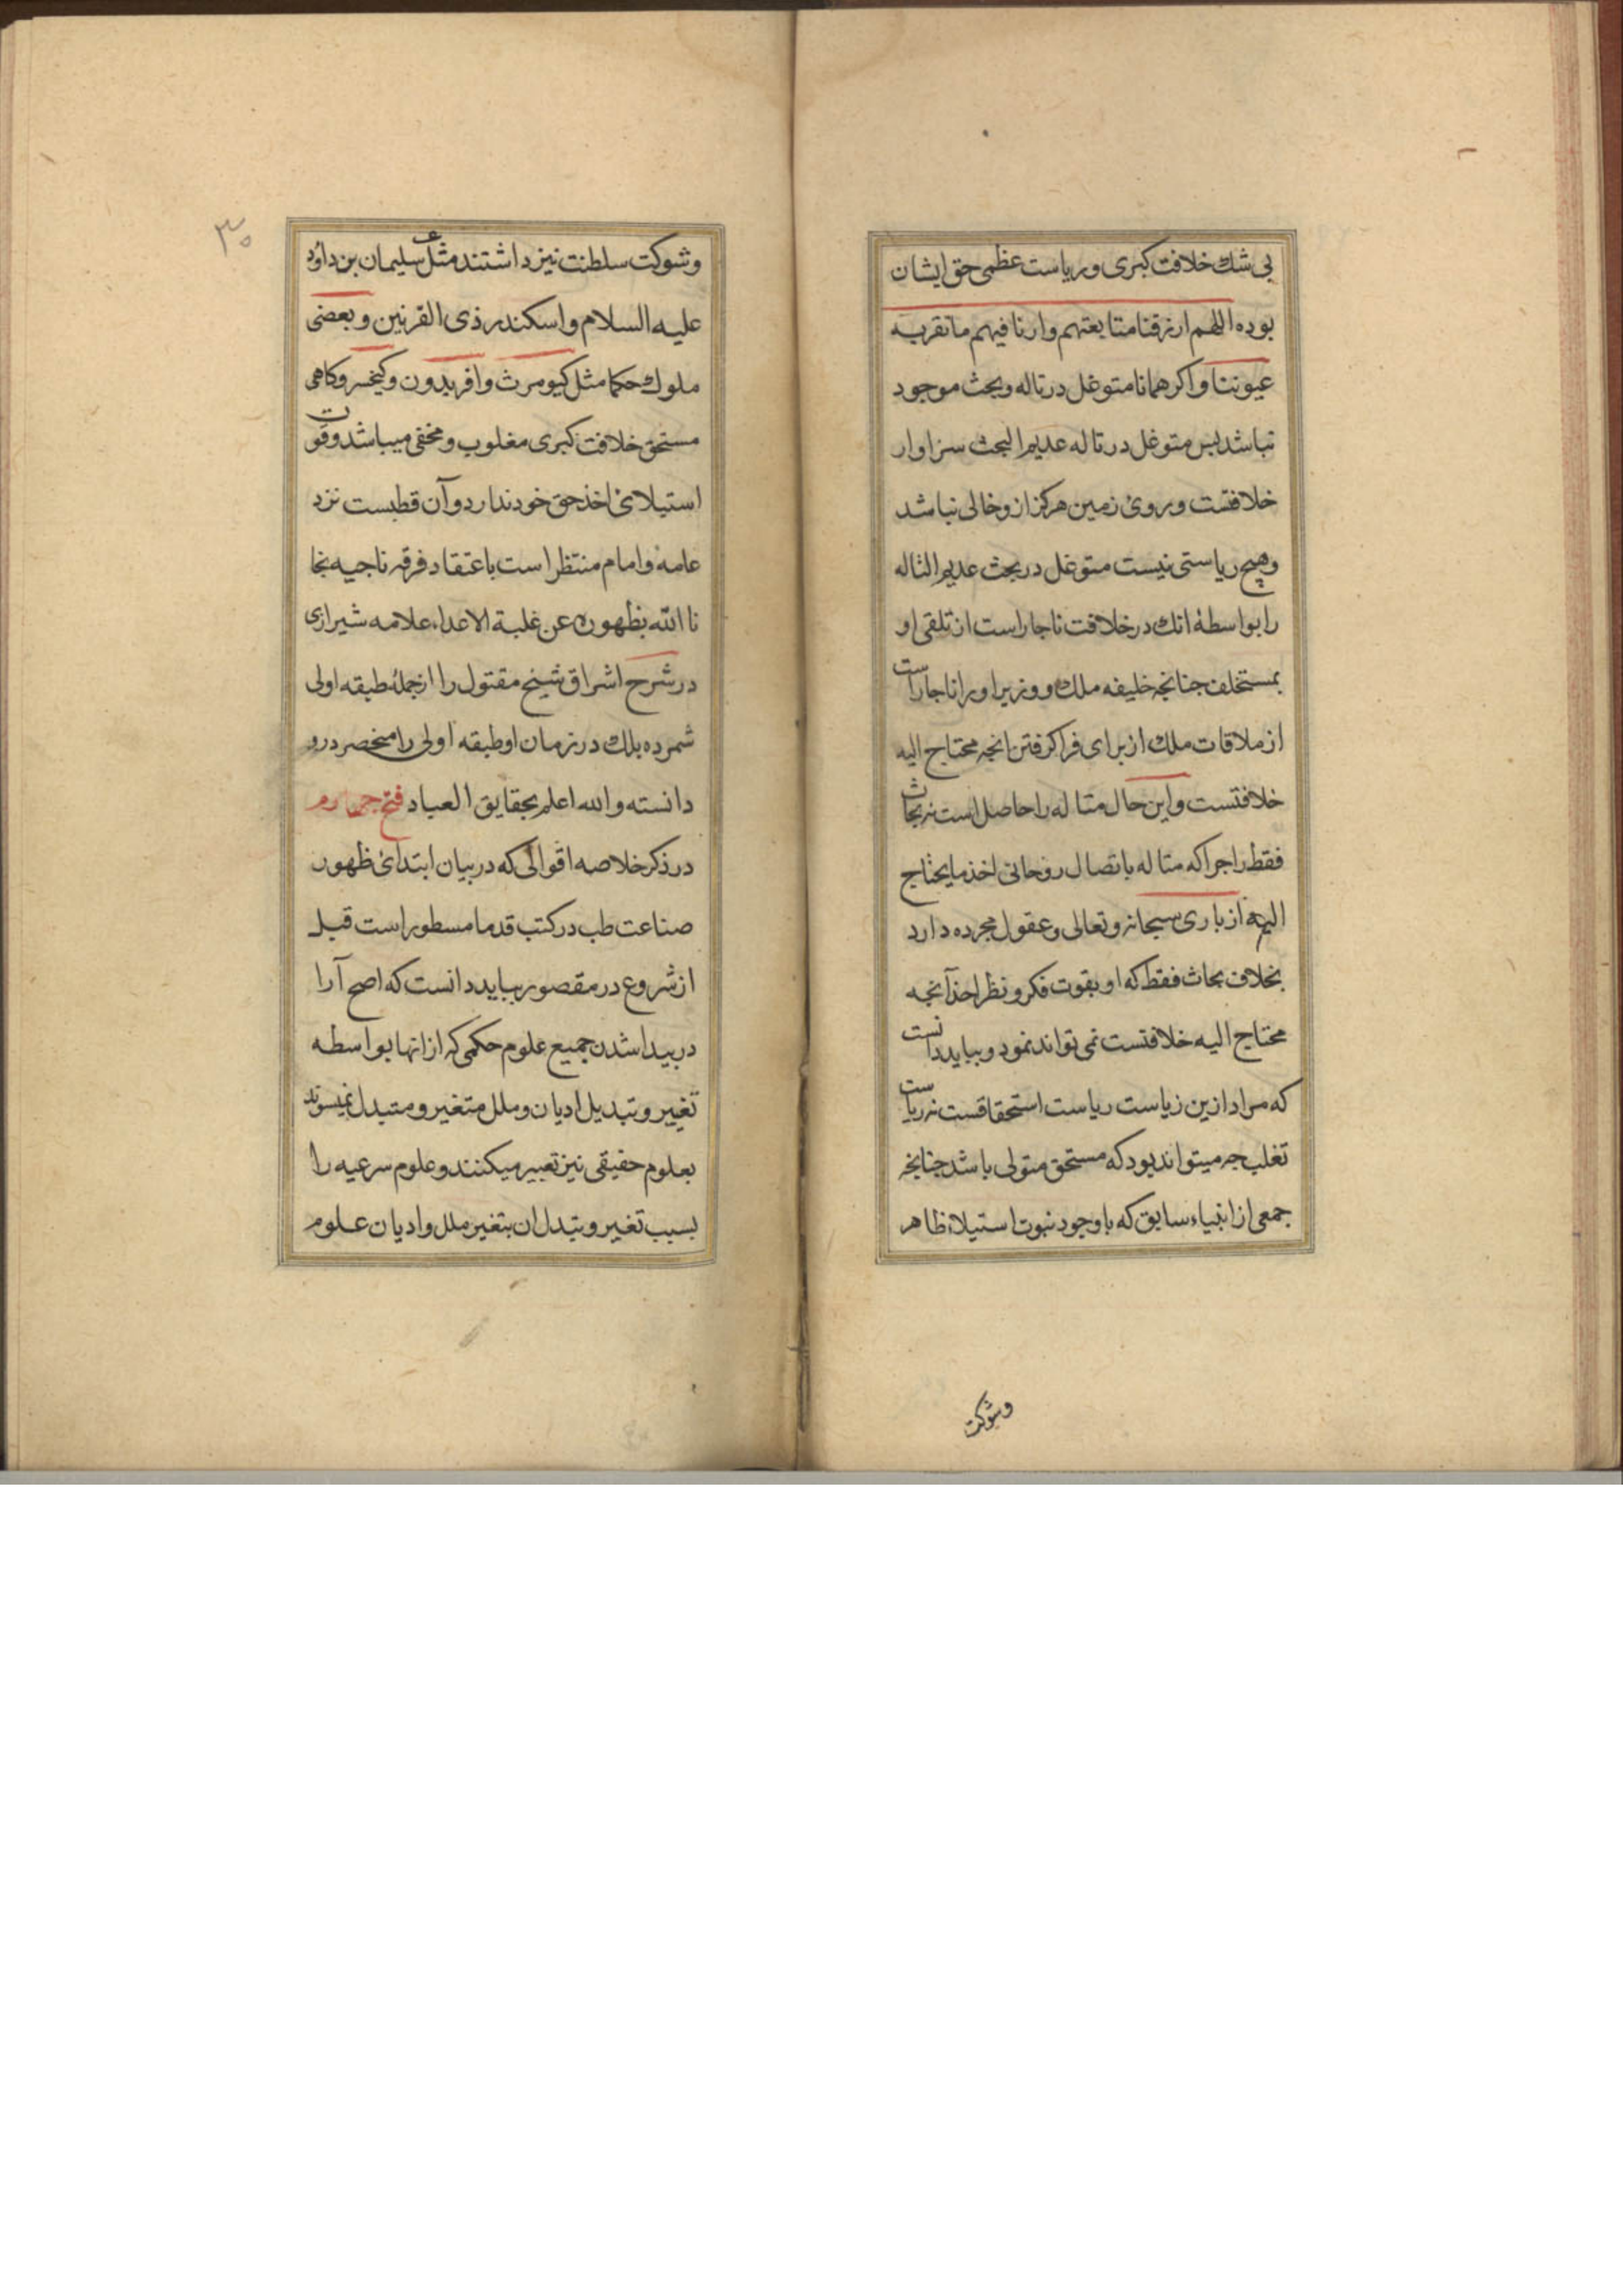 بی شك خلافت کبری و ریاست عظمی حق ایشان
بوده اللهم ارزقنا متابعتهم وارنا فیهم ما تقربه
عیوننا و اکر همانا متوغل در تاله و بحث موجود
نباشد بس متوغل در تاله عدیم البحث سزاوار
خلافتست و بروی زمین هرکز از و خالی نباشد
وهیچ ریاستی نیست متوغل در بحث عدیم التاله
را بواسطهٔ انك در خلافت ناجار است از تلقی او
بمستخلف جنانجه خلیفه ملك و وزیر او را ناجار است
از ملاقات ملك از برای فرا کرفتن انجه محتاج الیه
خلافتست و این حال متاله را حاصل است نه بحاث
فقط را جرا که متاله باتصال روحانی اخذ ما یحتاج
الیه از باری سبحانه و تعالی و عقول مجرده دارد
بخلاف بحاث فقط که او بقوت فکر و نظر اخذ آنجه
محتاج الیه خلافتست نمی تواند نمود و بباید دانست
که مراد ازین ریاست ریاست استحقاقست نه ریاست
تغلب جه میتواند بود که مستحق متولی باشد جنانجه
جمعی از انبیاء سابق که با وجود نبوت استیلاء ظاهر
وشوکت
۳۰
وشوکت سلطنت نیز داشتند مثل سلیمان بن داؤد
علیه السلام و اسکندر ذی القرنین و بعضی
ملوك حکما مثل کیومرث و افریدون و کیخسرو کاهی
مستحق خلافت کبری مغلوب و مخفی میباشد وقوت
استیلای اخذ حق خود ندارد و آن قطبست نزد
عامه و امام منتظر است باعتقاد فرقه ناجیه نجا
نا الله بظهوره عن غلبة الاعداء علامه شیرازی
در شرح اشراق شیخ مقتول را از جمله طبقه اولی
شمرده بلك در زمان او طبقه اولی را منحصر درو
دانسته و الله اعلم بحقایق العباد فتح جهارم
در ذکر خلاصه اقوالی که در بیان ابتدای ظهور
صناعت طب در کتب قدما مسطور است قبل
از شروع در مقصور بباید دانست که اصح آرا
در بیدا شدن جمیع علوم حکمی که از انها بواسطه
تغییر و تبدیل ادیان و ملل متغیر و متبدل نمیسوند
بعلوم حقیقی نیز تعبیر میکنند و علوم سرعیه را
بسبب تغیر و تبدل ان بتغیر ملل و ادیان علوم